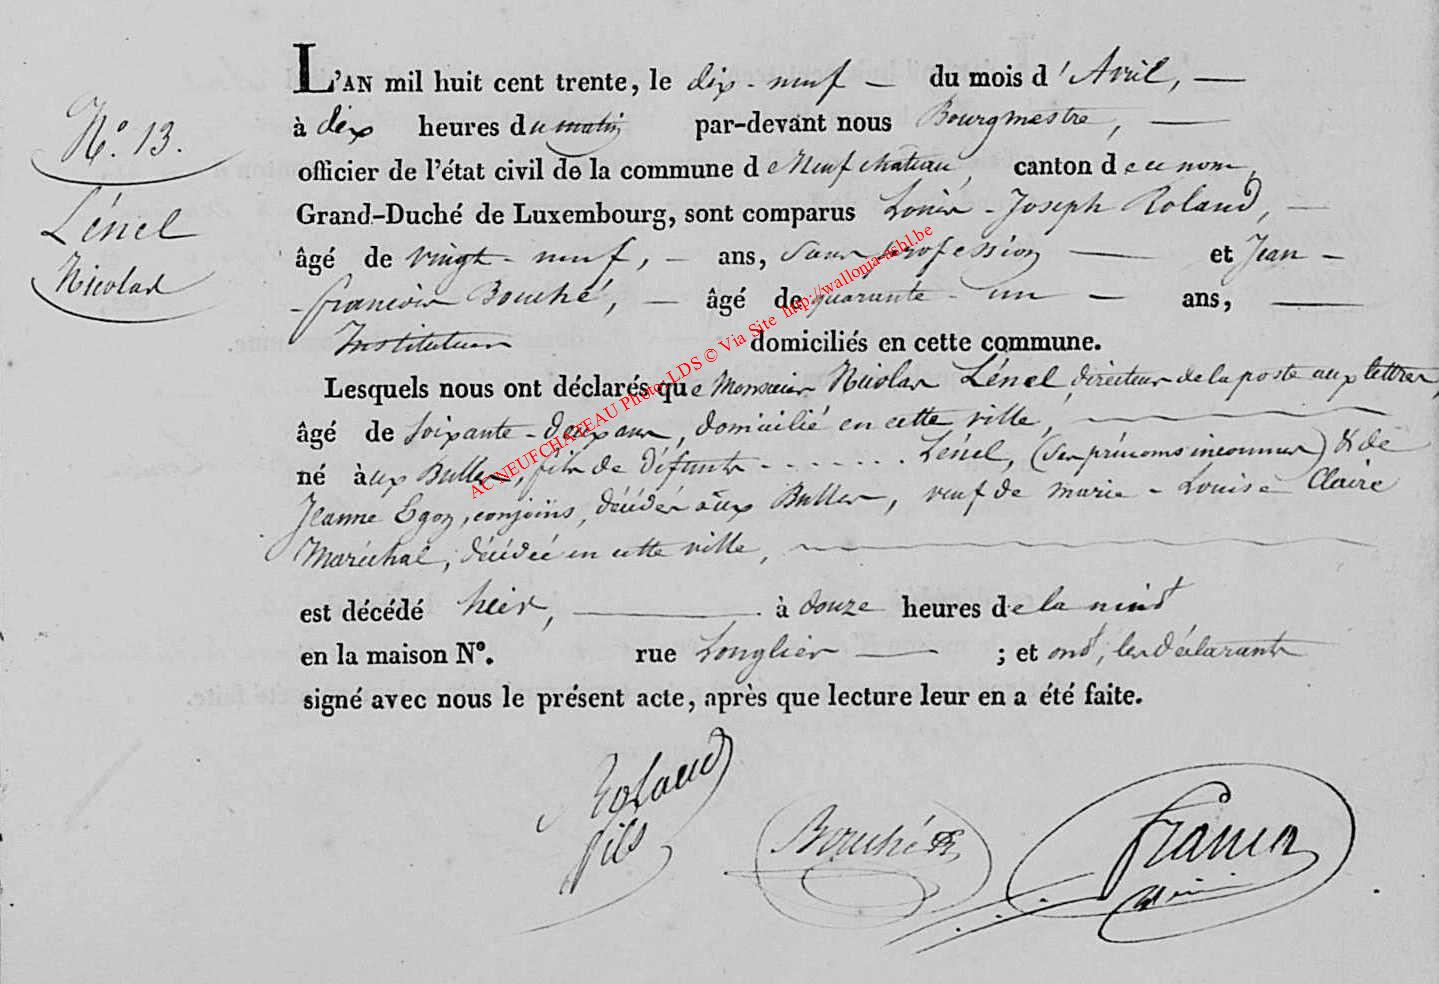 N.° 13.
Lénel
Nicolas
L'AN mil huit cent trente, le dix-neuf du mois d'Avril,
à dix heures du matin par-devant nous Bourgmestre,
officier de l'état civil de la commune de Neufchateau, canton du nom,
Grand-Duché de Luxembourg, sont comparus Louis-Joseph Roland,
âgé de vingt-neuf, ans, sans profession et Jean-
françois Bouché, âgé de quarante-un ans,
Instituteur domiciliés en cette commune.
Lesquels nous ont déclarés que Monsieur Nicolas Lénel, directeur de la poste aux lettres,
âgé de soixante-deux ans, domicilié en cette ville,
né à aux Bulles, fils de défunts . . . . . . . Lénel, (ses prénoms inconnus) & de
Jeanne Egoy, conjoins, décédés aux Bulles, veuf de marie-Louise Claire
Maréchal, décédée en cette ville,
est décédé hier, à douze heures de la nuit
en la maison N°. rue Longlier ; et ont, les déclarants
signé avec nous le présent acte, après que lecture leur en a été faite.
Roland
fils
Bouché
AC NEUFCHATEAU Photo LDS © Via Site http://wallonia-asbl.be